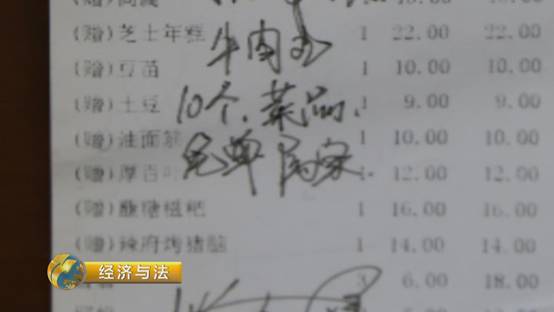 (赠)芝士年糕 1 22.00 22.00
牛肉
(赠)豆苗 1 10.00 10.00
(赠)土豆 1 9.00 9.00
10个、菜品、
(赠)油面筋 1 10.00 10.00
免单
(赠)厚百叶 1 12.00 12.00
(赠)糍粑 1 16.00 16.00
(赠)辣府烤猪脑 1 14.00 14.00
3 6.00 18.00
经济与法